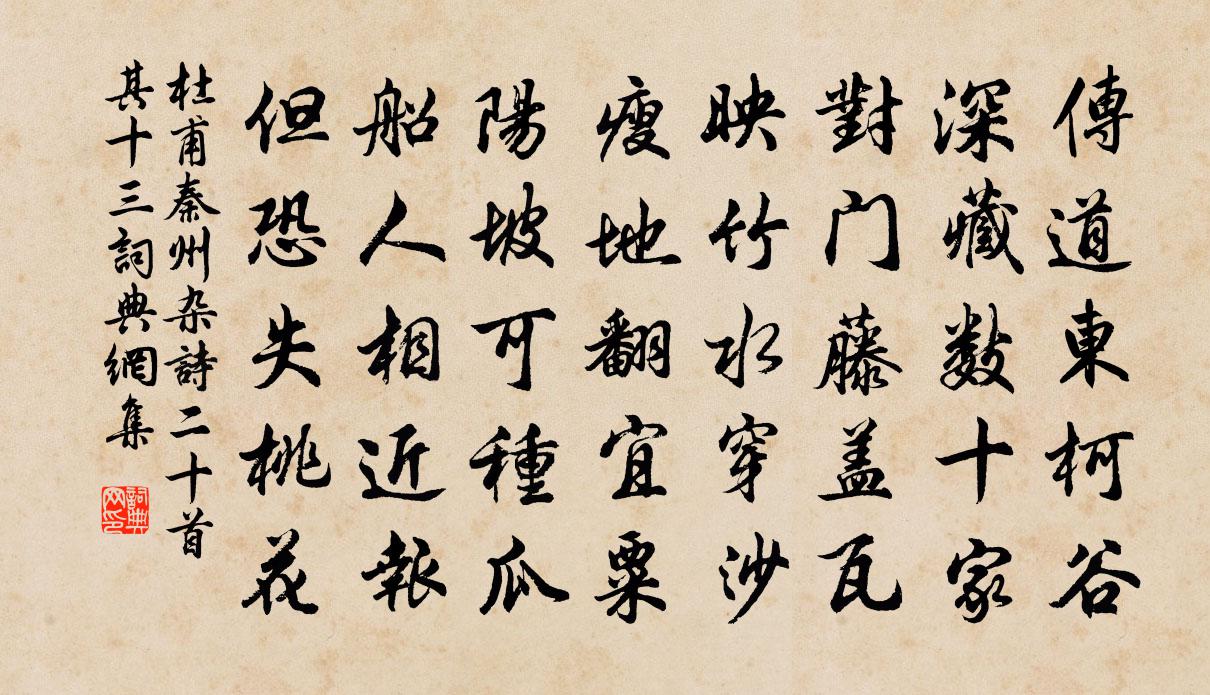 傳道東柯谷
深藏数十家
對门藤盖瓦
映竹水穿沙
瘦地翻宜粟
陽坡可種瓜
船人相近報
但恐失桃花
杜甫秦州杂詩二十首
其十三詞典網集
詞典
网印